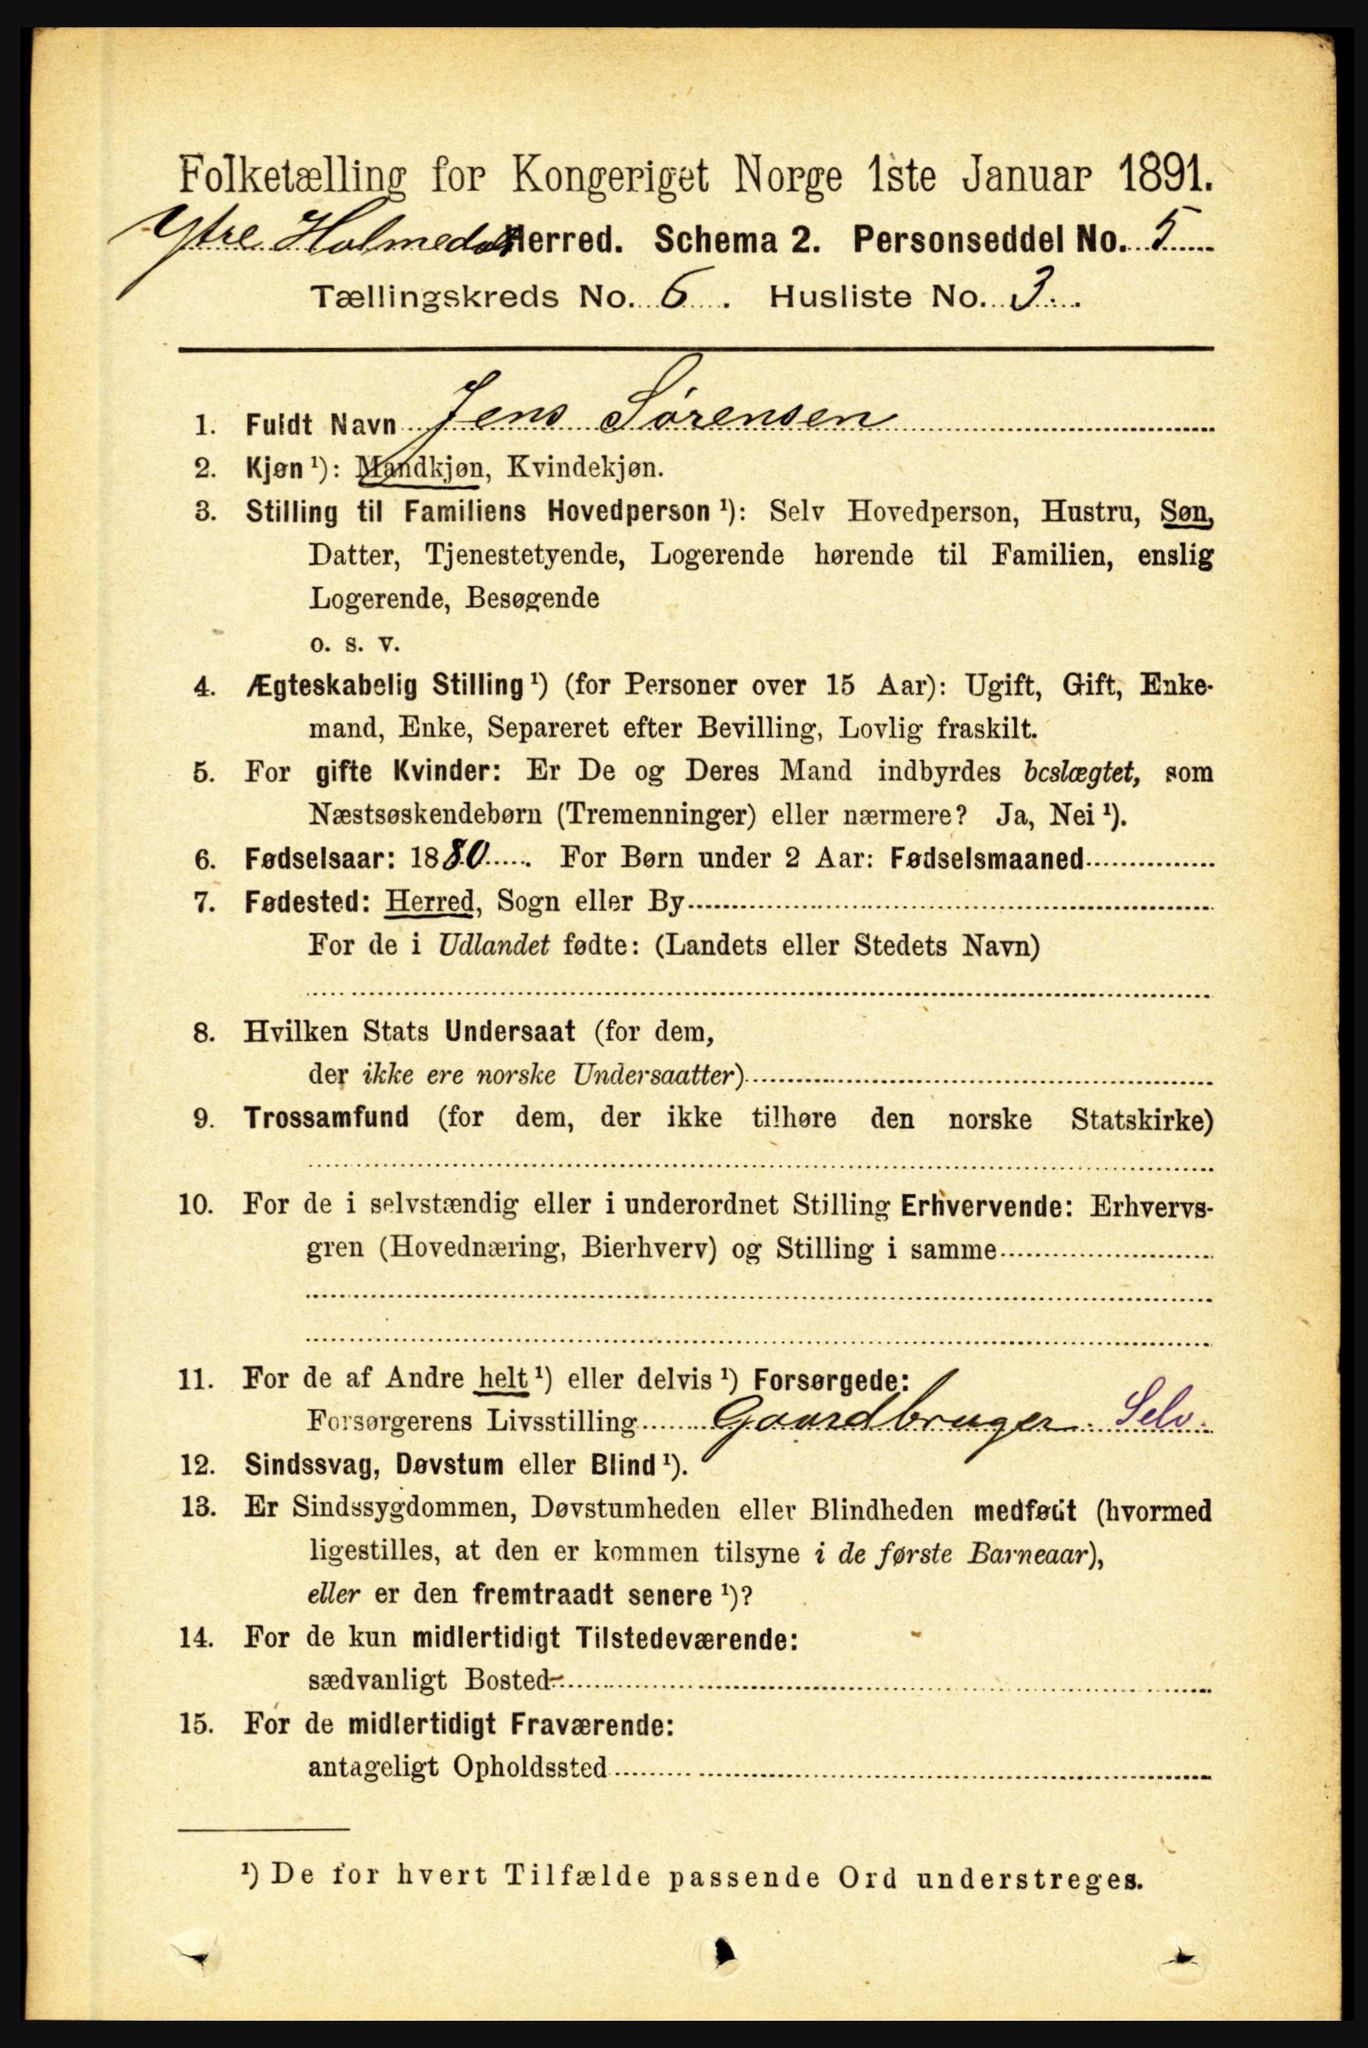 Folketælling for Kongeriget Norge 1ste Januar 1891.
Ytre Holmedal Herred. Schema 2. Personseddel No. 5
Tællingskreds No. 6. Husliste No. 3.
1. Fuldt Navn Jens Sørensen
2. Kjøn¹): Mandkjøn, Kvindekjøn.
3. Stilling til Familiens Hovedperson¹): Selv Hovedperson, Hustru, Søn,
Datter, Tjenestetyende, Logerende hørende til Familien, enslig
Logerende, Besøgende
o. s. v.
4. Ægteskabelig Stilling¹) (for Personer over 15 Aar): Ugift, Gift, Enke-
mand, Enke, Separeret efter Bevilling, Lovlig fraskilt.
5. For gifte Kvinder: Er De og Deres Mand indbyrdes beslægtet, som
Næstsøskendebørn (Tremenninger) eller nærmere? Ja, Nei¹).
6. Fødselsaar: 1880. For Børn under 2 Aar: Fødselsmaaned
7. Fødested: Herred, Sogn eller By
For de i Udlandet fødte: (Landets eller Stedets Navn)
8. Hvilken Stats Undersaat (for dem,
der ikke ere norske Undersaatter)
9. Trossamfund (for dem, der ikke tilhøre den norske Statskirke)
10. For de i selvstændig eller i underordnet Stilling Erhvervende: Erhvervs-
gren (Hovednæring, Bierhverv) og Stilling i samme
11. For de af Andre helt¹) eller delvis¹) Forsørgede:
Forsørgerens Livsstilling Gaardbruger Selv.
12. Sindssvag, Døvstum eller Blind¹).
13. Er Sindssygdommen, Døvstumheden eller Blindheden medfødt (hvormed
ligestilles, at den er kommen tilsyne i de første Barneaar),
eller er den fremtraadt senere¹)?
14. For de kun midlertidigt Tilstedeværende:
sædvanligt Bosted
15. For de midlertidigt Fraværende:
antageligt Opholdssted
¹) De for hvert Tilfælde passende Ord understreges.